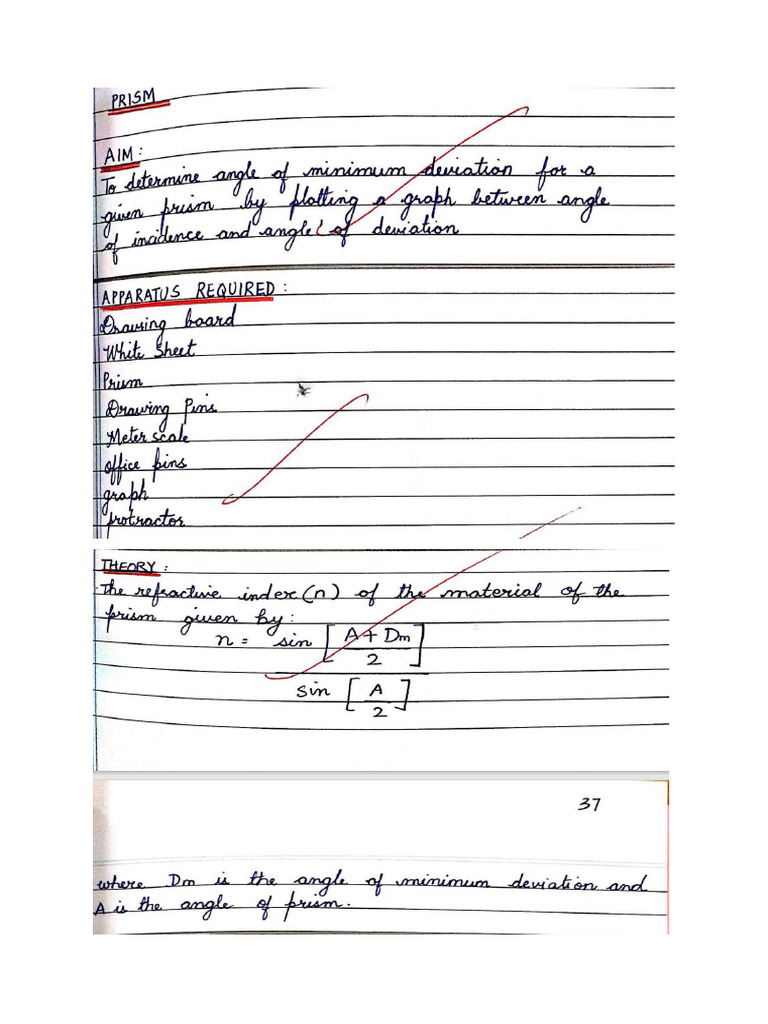 PRISM
AIM:
To determine angle of minimum deviation for a
given prism by plotting a graph between angle
of incidence and angle of deviation
APPARATUS REQUIRED:
Drawing board
White Sheet
Prism
Drawing Pins
Meter scale
office pins
graph
protractor
THEORY:
The refractive index (n) of the material of the
prism given by:
n = sin [A + Dm / 2]
sin [A / 2]
37
where Dm is the angle of minimum deviation and
A is the angle of prism.